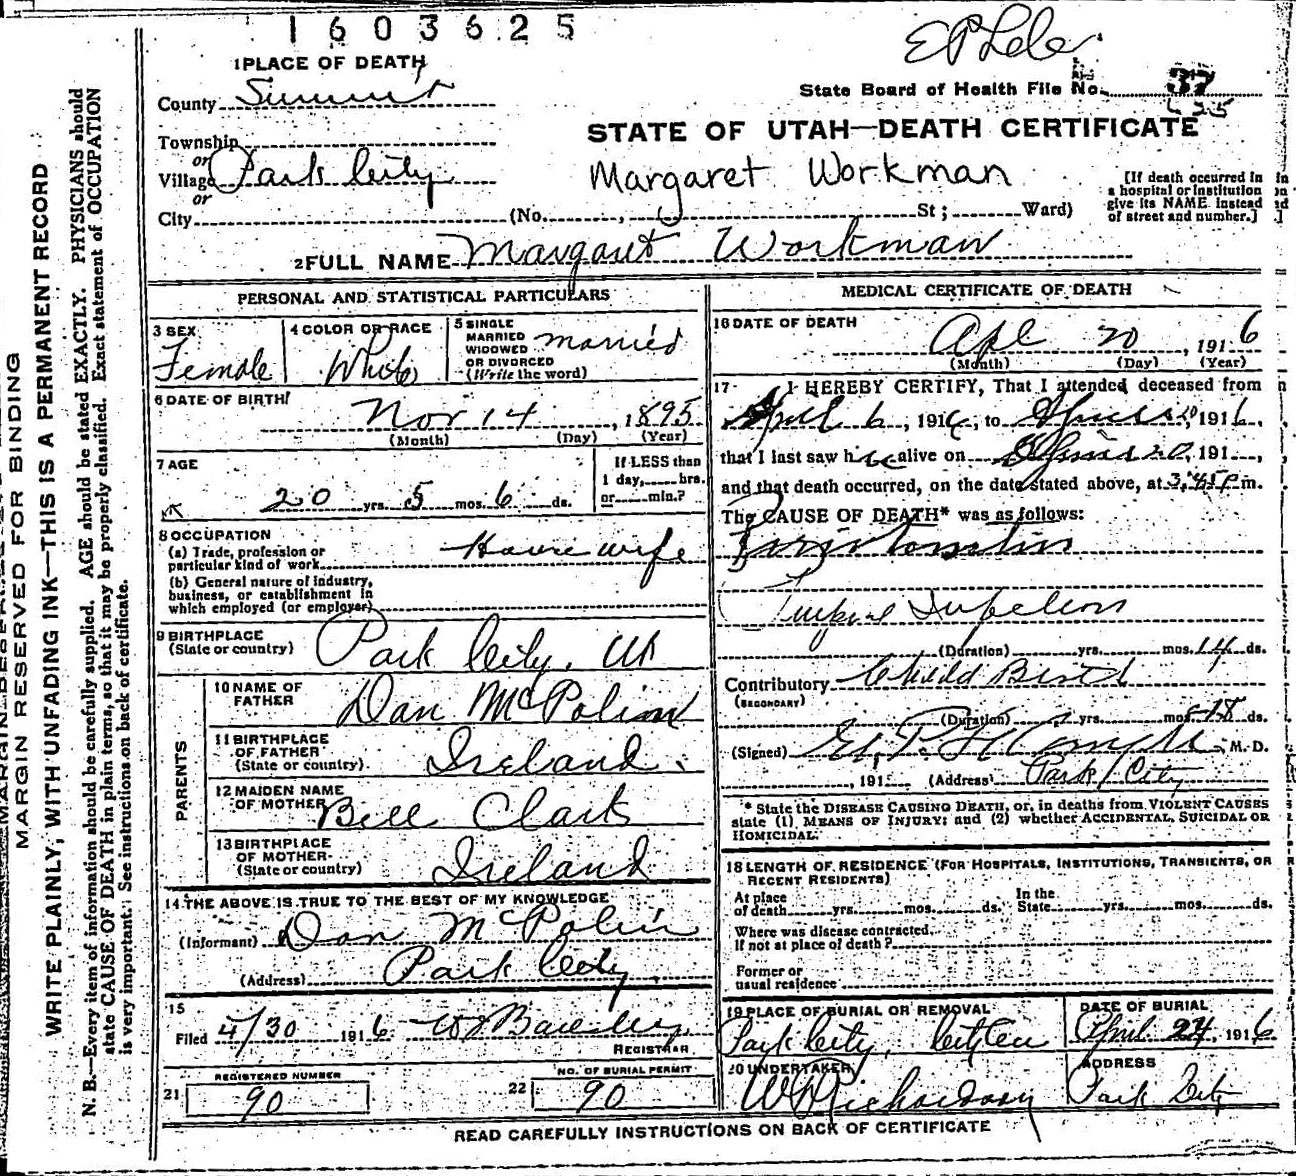 1603625
1 PLACE OF DEATH
County Summit
State Board of Health File No. 37
Township
or
Village Park City
or
City (No. , St ; Ward)
STATE OF UTAH—DEATH CERTIFICATE
Margaret Workman
[If death occurred in
a hospital or institution
give its NAME instead
of street and number.]
2 FULL NAME Margaret Workman
PERSONAL AND STATISTICAL PARTICULARS
3 SEX
Female
4 COLOR OR RACE
White
5 SINGLE
MARRIED
WIDOWED
OR DIVORCED
(Write the word)
married
6 DATE OF BIRTH
Nov 14, 1895
(Month) (Day) (Year)
7 AGE
20 yrs. 5 mos. 6 ds.
If LESS than
1 day, hrs.
or min.?
8 OCCUPATION
(a) Trade, profession or
particular kind of work Housewife
(b) General nature of industry,
business, or establishment in
which employed (or employer)
9 BIRTHPLACE
(State or country) Park City, Ut
PARENTS
10 NAME OF
FATHER Dan McPolin
11 BIRTHPLACE
OF FATHER
(State or country) Ireland.
12 MAIDEN NAME
OF MOTHER Bell Clark
13 BIRTHPLACE
OF MOTHER
(State or country) Ireland
14 THE ABOVE IS TRUE TO THE BEST OF MY KNOWLEDGE
(Informant) Dan McPolin
(Address) Park City
15
Filed 4/30 1916
REGISTRAR
REGISTERED NUMBER
21 90
NO. OF BURIAL PERMIT
22 90
MEDICAL CERTIFICATE OF DEATH
16 DATE OF DEATH
Apl 20, 1916
(Month) (Day) (Year)
17 I HEREBY CERTIFY, That I attended deceased from
April 6, 1916, to April 20, 1916,
that I last saw her alive on April 20, 191 ,
and that death occurred, on the date stated above, at 3.45 P m.
The CAUSE OF DEATH* was as follows:
(Duration) yrs. mos. 14 ds.
Contributory Child Birth
(SECONDARY)
(Duration) yrs. mos. 18 ds.
(Signed) M. D.
, 191 (Address) Park City
* State the DISEASE CAUSING DEATH, or, in deaths from VIOLENT CAUSES
state (1) MEANS OF INJURY; and (2) whether ACCIDENTAL, SUICIDAL OR
HOMICIDAL.
18 LENGTH OF RESIDENCE (FOR HOSPITALS, INSTITUTIONS, TRANSIENTS, OR
RECENT RESIDENTS)
At place
of death yrs. mos. ds.
In the
State yrs. mos. ds.
Where was disease contracted
If not at place of death?
Former or
usual residence
19 PLACE OF BURIAL OR REMOVAL
Park City,
DATE OF BURIAL
April 24, 1916
20 UNDERTAKER
W Richardson
ADDRESS
Park City
READ CAREFULLY INSTRUCTIONS ON BACK OF CERTIFICATE
MARGIN RESERVED FOR BINDING
WRITE PLAINLY, WITH UNFADING INK—THIS IS A PERMANENT RECORD
N. B.—Every item of information should be carefully supplied. AGE should be stated EXACTLY. PHYSICIANS should
state CAUSE OF DEATH in plain terms, so that it may be properly classified. Exact statement of OCCUPATION
is very important. See instructions on back of certificate.